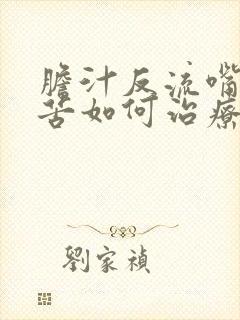 膽汁反流嘴
苦如何治療
劉家禎